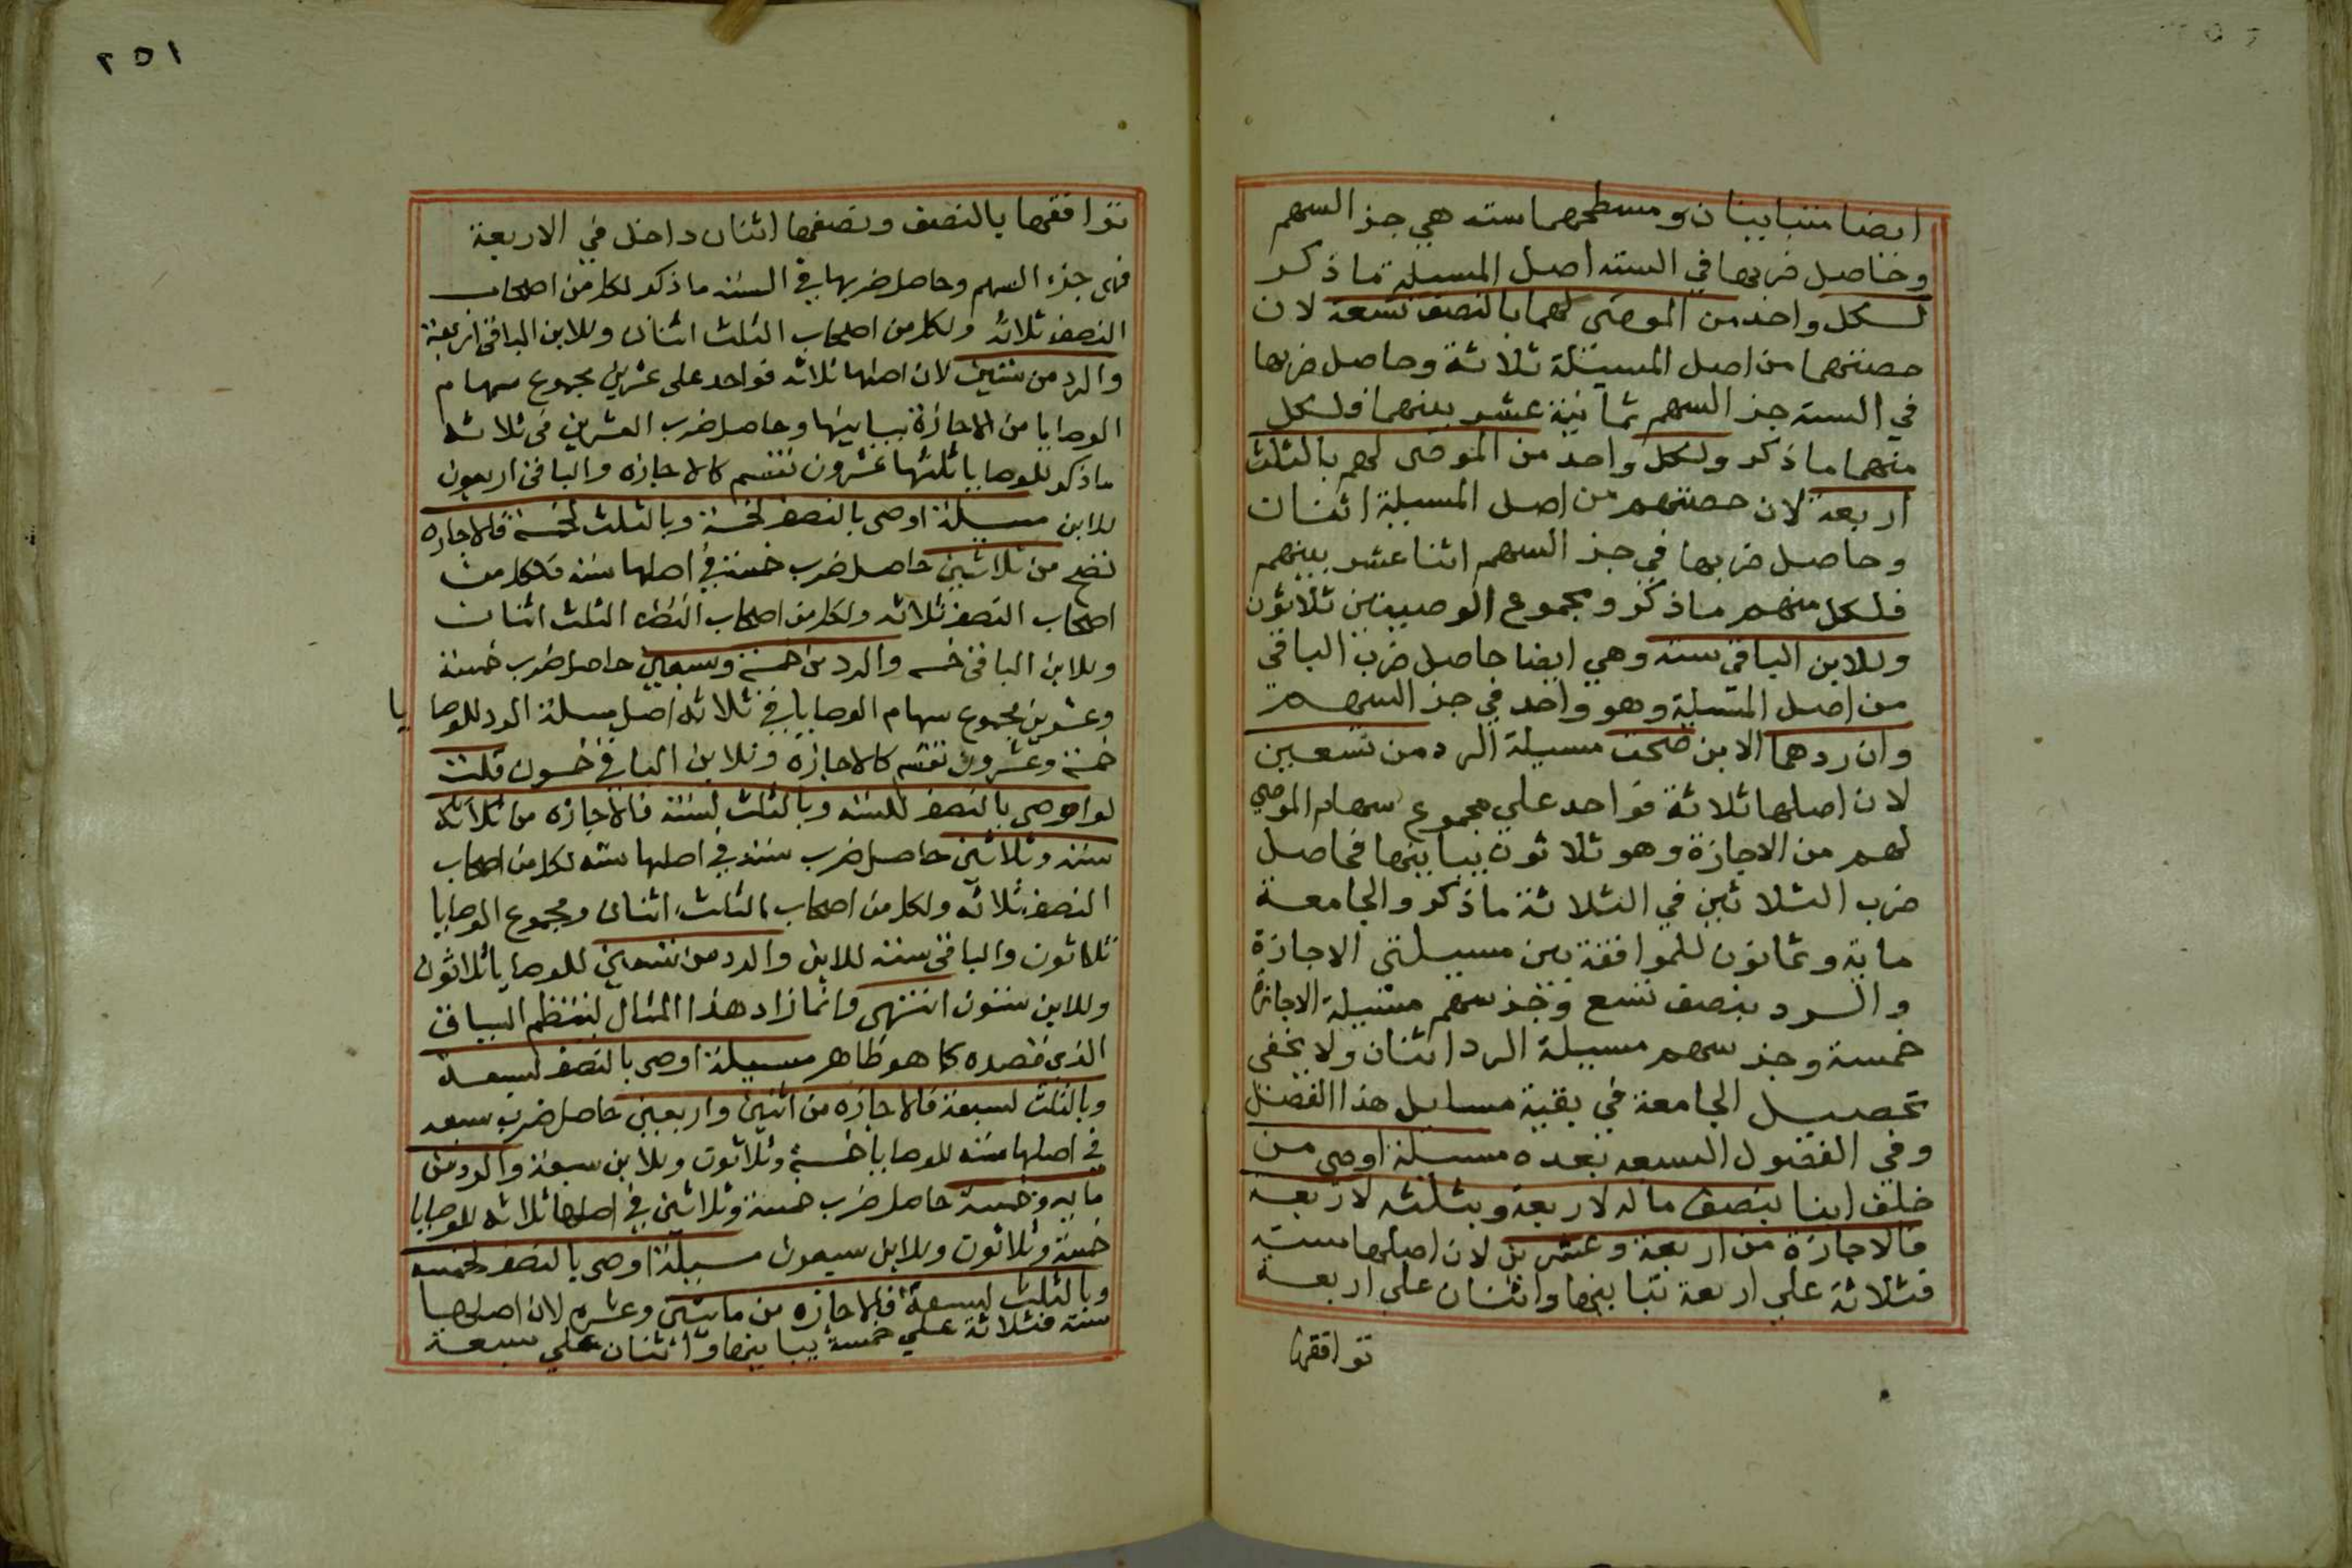 ايضا متباينان ومسطحهما سته هي جز السهم
وحاصل ضربها في السته اصل المسيلة ما ذكر
لكل واحد من الموصى لهما بالنصف تسعة لان
حصتهما من اصل المسيلة ثلاثة وحاصل ضربها
في الستة جز السهم ثمانية عشر بينهما فلكل
منهما ما ذكر ولكل واحد من الموصى لهم بالثلث
اربعة لان حصتهم من اصل المسيلة اثنان
وحاصل ضربها في جز السهم اثنا عشر بينهم
فلكل منهم ما ذكر ومجموع الوصيتين ثلاثون
وللابن الباقي ستة وهي ايضا حاصل ضرب الباقي
من اصل المسيلة وهو واحد في جز السهم
وان ردهما الابن صحت مسيلة الرد من تسعين
لان اصلها ثلاثة فواحد علي مجموع سهام الموصي
لهم من الاجازة وهو ثلاثون يباينها فحاصل
ضرب الثلاثين في الثلاثة ما ذكر والجامعة
ماية وثمانون للموافقة بين مسيلتي الاجازة
والرد بنصف تسع فجز سهم مسيلة الاجازة
خمسة وجز سهم مسيلة الرد اثنان ولا يخفى
تحصيل الجامعة في بقية مسايل هذا الفصل
وفي الفصول التسعه بعده مسيلة اوصي من
خلف ابنا بنصف ماله لاربعة وبثلثه لاربعة
فالاجازة من اربعة وعشرين لان اصلها ستة
فثلاثة علي اربعة تباينها واثنان علي اربعة
توافقها
٢٥١
توافقها بالنصف ونصفها اثنان داخل في الاربعة
فهي جزء السهم وحاصل ضربها في الستة ما ذكر لكل من اصحاب
النصف ثلاثة ولكل من اصحاب الثلث اثنان وللابن الباقي اربعة
والرد من ستين لان اصلها ثلاثة فواحد على عشرين مجموع سهام
الوصايا من الاجازة يباينها وحاصل ضرب العشرين في ثلاثة
ما ذكر للوصايا ثلثها عشرون تقسم كالاجازه والباقي اربعون
للابن مسيلة اوصى بالنصف لخمسة وبالثلث لخمسة فالاجازه
تصح من ثلاثين حاصل ضرب خمسة في اصلها ستة فلكل من
اصحاب النصف ثلاثة ولكل من اصحاب الثلث اثنان
وللابن الباقي خمسه والرد من خمسة وسبعين حاصل ضرب خمسة
وعشرين مجموع سهام الوصايا في ثلاثة اصل مسيلة الرد للوصا يا
خمسة وعشرون تقسم كالاجازه وللابن الباقي خمسون قلت
لو اوصى بالنصف لستة وبالثلث لستة فالاجازه من
ستة وثلاثين حاصل ضرب ستة في اصلها ستة لكل من اصحاب
النصف ثلاثة ولكل من اصحاب الثلث اثنان ومجموع الوصايا
ثلاثون والباقي ستة للابن والرد من تسعين للوصايا ثلاثون
وللابن ستون انتهى وانما زاد هذا المثال لينتظم السياق
الذي قصده كما هو ظاهر مسيلة اوصى بالنصف لسبعة
وبالثلث لسبعة فالاجازه من اثنين واربعين حاصل ضرب سبعه
في اصلها ستة للوصايا خمسة وثلاثون وللابن سبعة والرد من
مايه وخمسة حاصل ضرب خمسة وثلاثين في اصلها ثلاثة للوصايا
خمسة وثلاثون وللابن سبعون مسيلة اوصى بالنصف لخمسه
وبالثلث لسبعة فالاجازه من مايتين وعشره لان اصلها
ستة فثلاثة علي خمسة يباينها واثنان علي سبعة